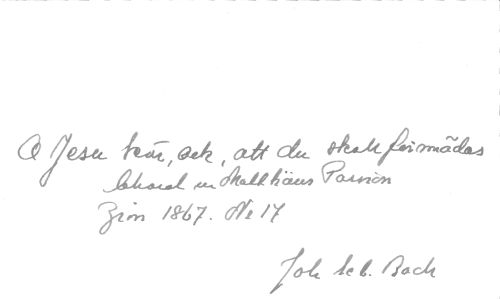 O Jesu kär, ack, att du skall försmädas
Choral ur Matthäus Passion
Zion 1867. No 17
Joh Seb. Bach